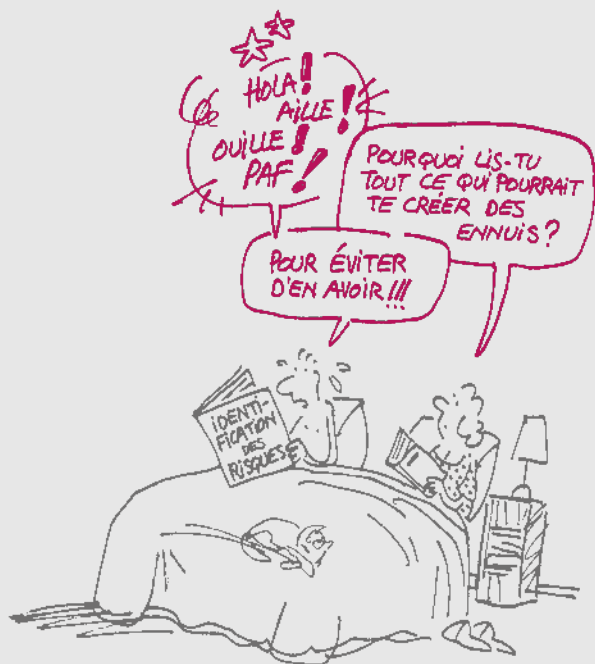 HOLA!
AILLE!
OUILLE!
PAF!
POURQUOI LIS-TU
TOUT CE QUI POURRAIT
TE CRÉER DES
ENNUIS?
POUR ÉVITER
D'EN AVOIR!!!
IDENTI-
FICATION
DES
RISQUES